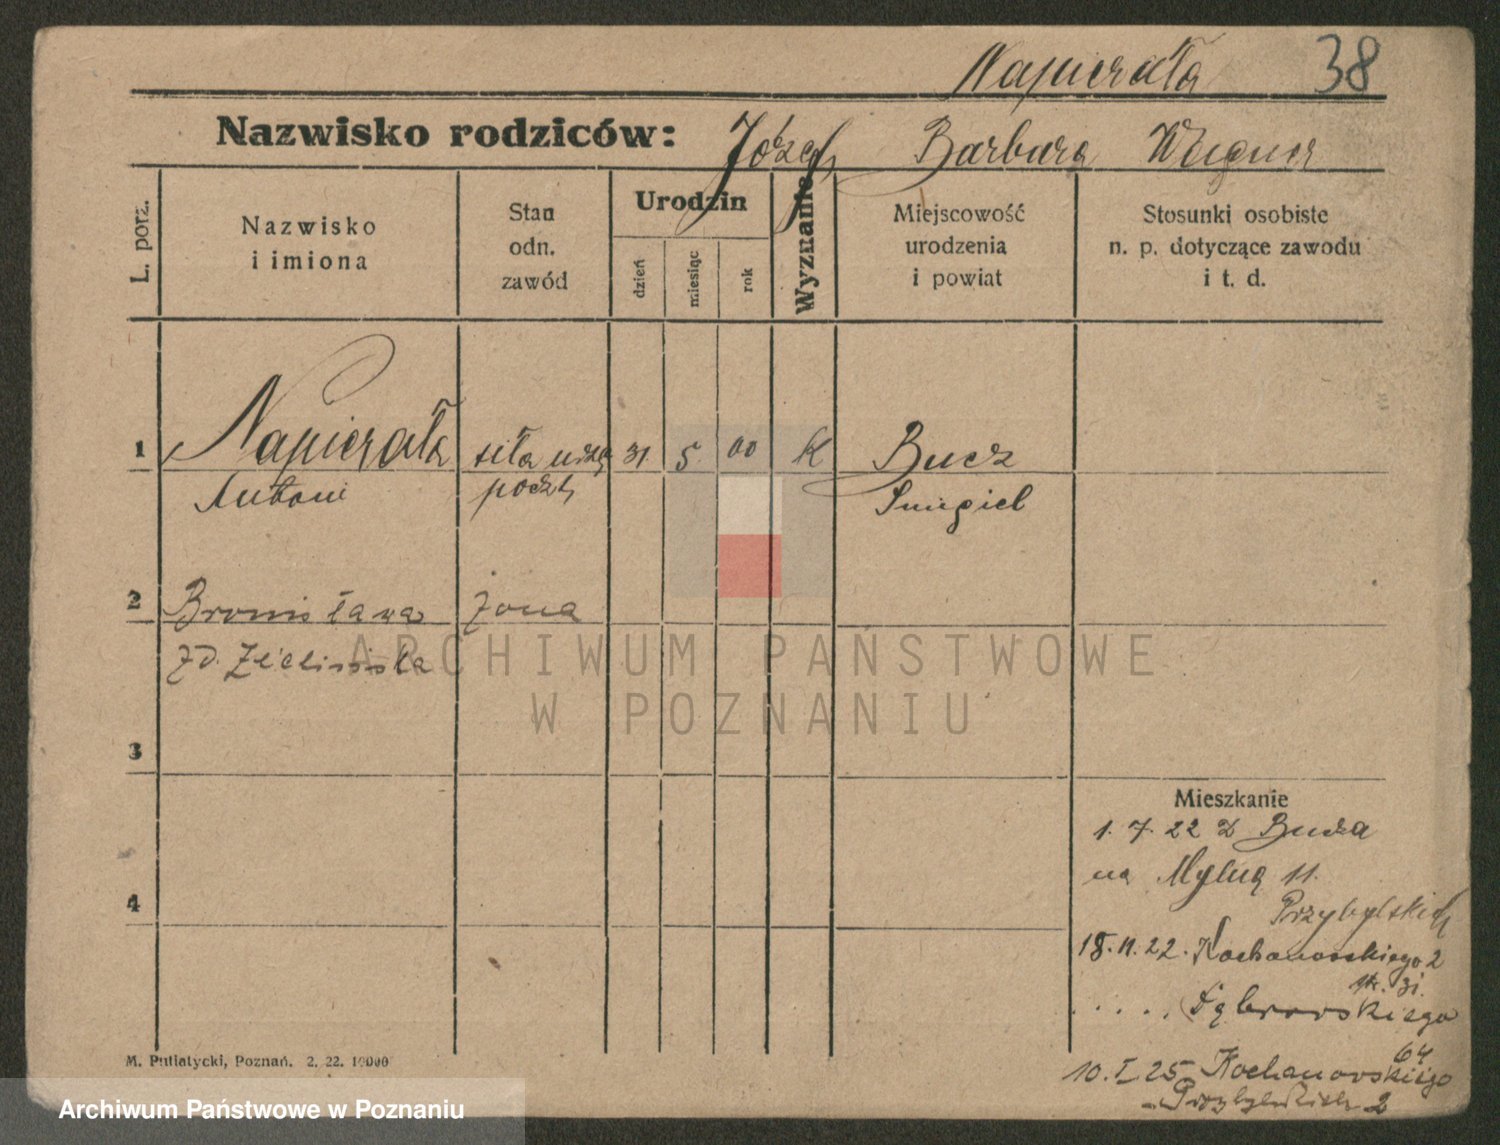 Napierała 38
Nazwisko rodziców: Józef, Barbara Wegner
L. porz.
Nazwisko
i imiona
Stan
odn.
zawód
Urodzin
dzień
miesiąc
rok
Wyznanie
Miejscowość
urodzenia
i powiat
Stosunki osobiste
n. p. dotyczące zawodu
i t. d.
1 Napierała siła urzę 31 5 00 k Bucz
Antoni poczt, Śmigiel
2 Bronisława żona
zd. Zielińska
3
4
ARCHIWUM PAŃSTWOWE
W POZNANIU
Mieszkanie
1. 7. 22 z Bucza
na Mylną 11.
Przybylskich
18. 11. 22. Kochanowskiego 2
31.
..... Dąbrowskiego
64
10. I 25 Kochanowskiego
- Przybylskich 2
M. Putiatycki, Poznań. 2. 22. 10000
Archiwum Państwowe w Poznaniu